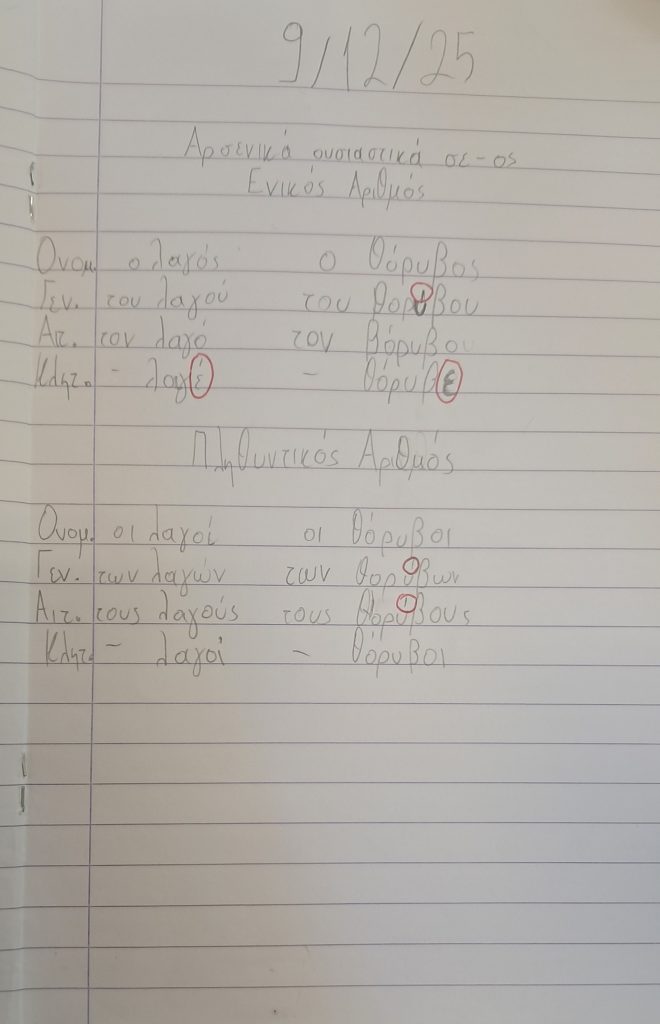 9/12/25
Αρσενικά ουσιαστικά σε -ος
Ενικός Αριθμός
Ονομ. ο λαγός ο θόρυβος
Γεν. του λαγού του θορύβου
Αιτ. τον λαγό τον θόρυβο
Κλητ. - λαγέ - θόρυβε
Πληθυντικός Αριθμός
Ονομ. οι λαγοί οι θόρυβοι
Γεν. των λαγών των θορύβων
Αιτ. τους λαγούς τους θορύβους
Κλητ. - λαγοί - θόρυβοι